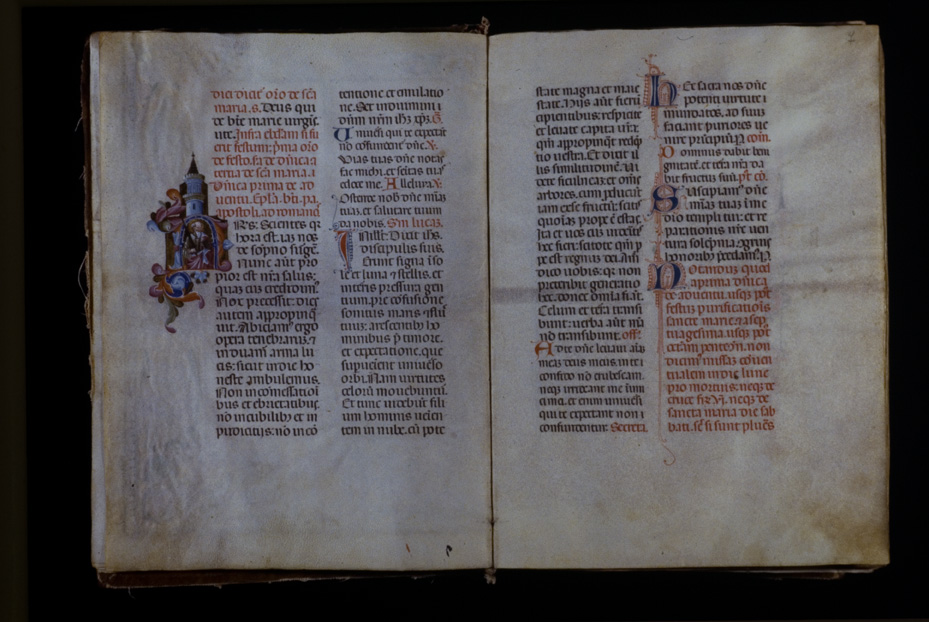 dici dicit̃ oꝛo de sc̃a
maria. s. Deus qui
de bte marie virgis
ute. Infra ebdam si fu
erit festum. pma oꝛo
de festo. sc̃da de dñica
tertia de sc̃a maria. i
Dñica prima de ad
uentu. Epl̃a. bti. pa.
apostoli. ad romanos
Frs. Scientes q̃
hora est. iaz nos
de sompno surge.
Nunc aut̃ pro
pior est nr̃a salus:
quaz cũ credidimꝰ
Nox precessit: dies
autem appropinq̃
uit. Abiciamꝰ ergo
opera tenebrarũ: ⁊
induam̃ arma lu
cis: sicut in die ho
neste ambulemus.
Non in comessatioi
bus et ebrietatibus:
nõ in cubilibꝫ et in
pudicitiis: nõ in cõ
tentione et emulatio
ne. Set induimini
dñm nr̃m ihs̃ xp̃z. G̃
Uniuersi qui te expectãt
nõ cõfundent̃ dñe. ℣.
Vias tuas dñe notas
fac michi. et seitas tuas
edoce me. Alleluia ℣.
Ostende nob̃ dñe miãz
tuãz. et salutare tuum
da nobis. Sm̃ lucaz.
In illo t̃. Dixit ihs̃.
discipulis suis.
Erunt signa ĩ so
le et luna ⁊ stellis. et
in terris pressura gen
tium. pre cõfusione
sonitus maris ⁊ fluc
tuuz: arescentibꝫ ho
minibus p̃ timore.
et expectatione. que
superuient uniũso
orbi. Nam uirtutes
celorũ mouebuntur.
Et tunc uidebũt fili
um hominis uenien
tem in nube. cũ pote
state magna et maie
state. Hiis aũt fieri
incipientibus: respicite
et leuate capita ur̃a:
qm̃ appropinq̃t redẽp
tio uestra. Et dixit il
lis similitudinẽ. Vi
dete ficulneaz: et om̃es
arbores. cum ꝓducũt
iam ex se fructũ: scitis
quoniaz prope ẽ estas.
Ita et uos cũ uideritis
hec fieri: scitote qm̃ p
pe est regnũ dei. Amẽ
dico uobis: qꝛ non
preteribit generatio
hec. donec om̃ia fiãt.
Celum et terra transi
bunt: uerba aũt mea
nõ transibunt. off̃.
Ad te dñe leuaui aĩaz
meaz deus meus in te cõ
confido nõ erubescam.
neq̃ irrideant me inimi
ci mei. et enim uniuersi
qui te expectant non
confundentur. Secreta.
Hec sacra nos dñe
potenti uirtute
mundatos. ad suuz
faciant puriores ue
nire principiũ. ꝑ com.
Dominus dabit beni
gnitatẽ. et terra nr̃a da
bit fructuz suũ. p̃t cõ.
Suscipiam̃ dñe
miãz tuaz ĩ me
dio templi tui: et re
parationis nr̃e uen
tura solẽpnia. cõgruis
honoribꝫ precedam̃. P
Notandus quod
a prima dñica
de aduentu. usq̃ post
festuz purificationis
sancte marie. ⁊ a sep
tuagesima. usq̃ post
octam pentecosten. non
dicimꝰ missaz cõuen
tualem in die lune
pro mortuis: neq̃ de
cruce fr̃ VI. neq̃ de
sancta maria die sab
bati. sed si sunt plures